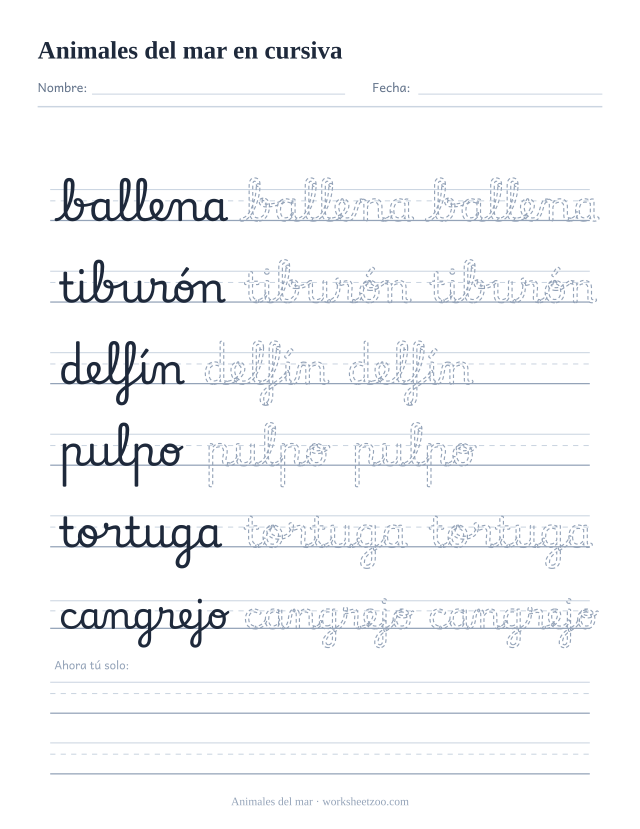 Animales del mar en cursiva
Nombre: Fecha:
ballena ballena ballena
tiburón tiburón tiburón
delfín delfín delfín
pulpo pulpo pulpo
tortuga tortuga tortuga
cangrejo cangrejo cangrejo
Ahora tú solo:
Animales del mar · worksheetzoo.com